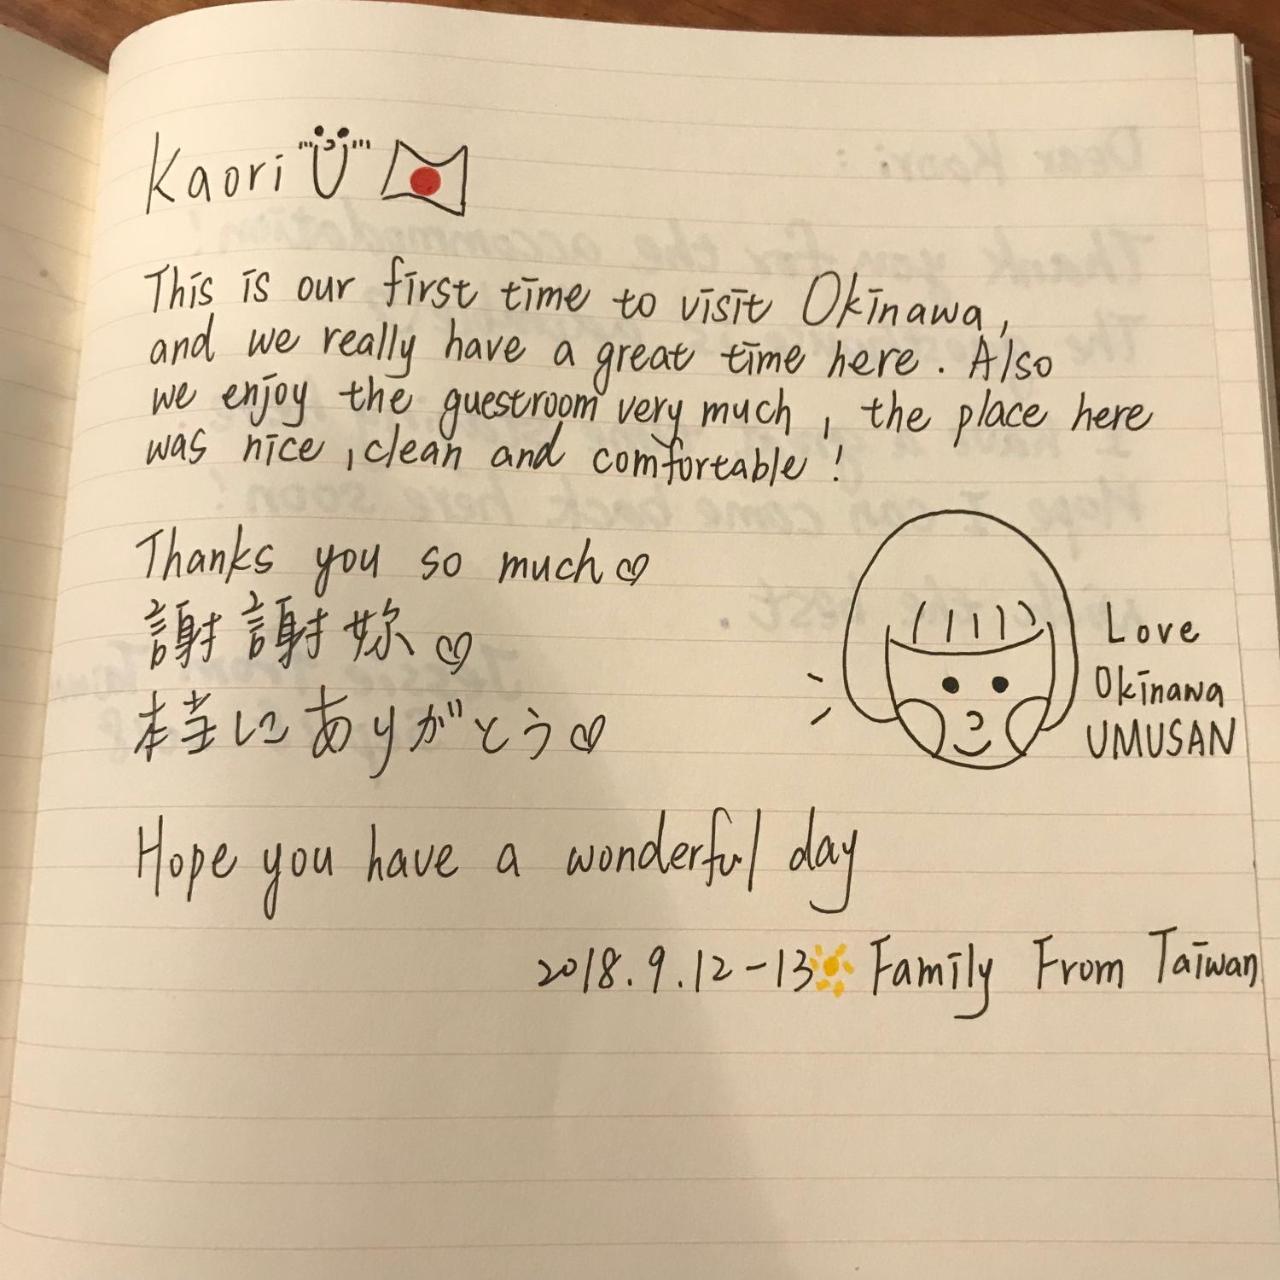 Kaori
This is our first time to visit Okinawa,
and we really have a great time here. Also
we enjoy the guestroom very much, the place here
was nice, clean and comfortable!
Thanks you so much♡
謝謝妳♡
本当にありがとう♡
Love
Okinawa
UMUSAN
Hope you have a wonderful day
2018.9.12-13 Family From Taiwan
Dear Kaori:
Thank you for the accommodation!
Hope I can come back here soon!